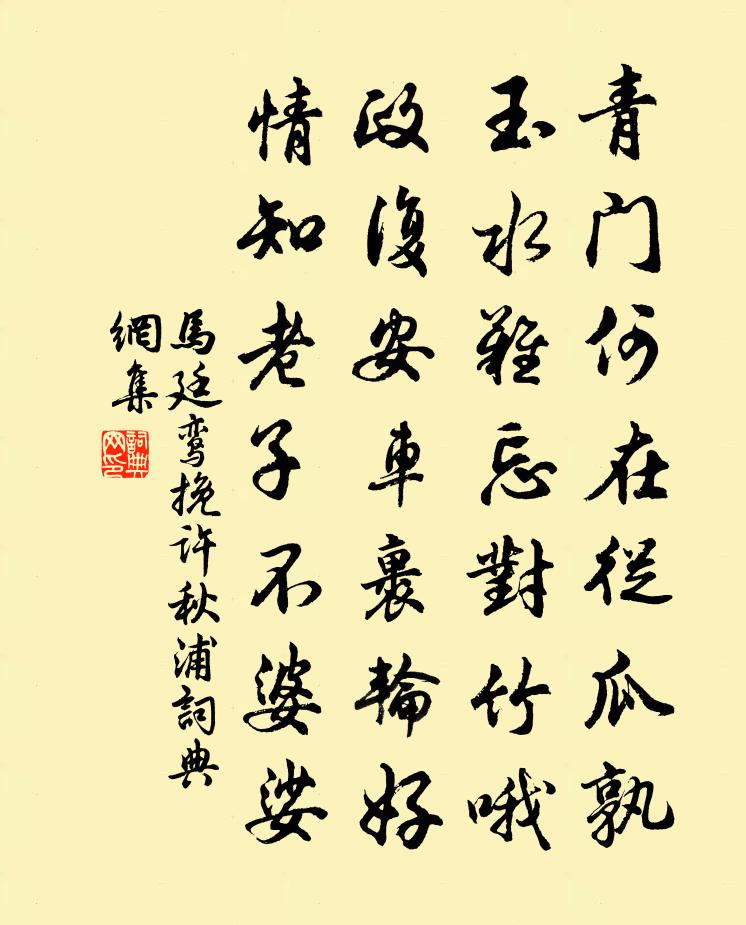 青门何在從瓜孰
玉水難忘對竹哦
政復安車裹輪好
情知老子不婆娑
馬廷鸞挽许秋浦詞典
網集
詞典
网印